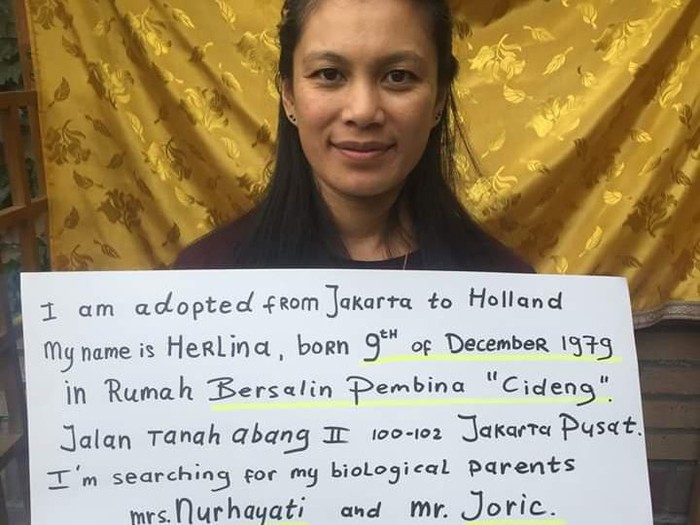 I am adopted from Jakarta to Holland
My name is Herlina, born 9th of December 1979
in Rumah Bersalin Pembina "Cideng".
Jalan Tanah abang II 100-102 Jakarta Pusat.
I'm searching for my biological parents
mrs. Nurhayati and mr. Joric.